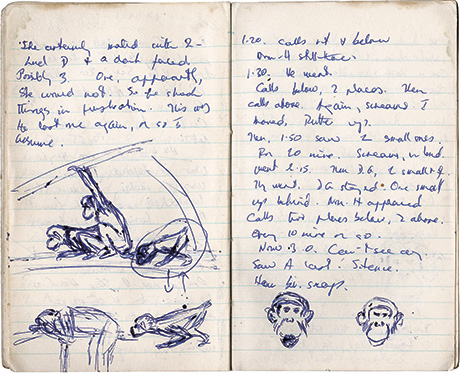 She certainly mated with 2 -
D & a dark faced
Possibly 3. One, apparently,
She would not. So he shook
things in frustration. This was
He lost me again, or so I
assume.
1.20. Calls rt & below
H still
1.30. He went.
Calls below, 2 places. Then
calls above. Again, screams I
moved.
Then, 1.50 saw 2 small ones.
For 20 mins. Screams,
went 2.15. Then D.G, 2 small +
They went. DG stayed. One small
up behind. H appeared
Calls two places below, 2 above.
Every 10 mins or so.
Now 3.0. Can't see any
Saw A last. Silence.